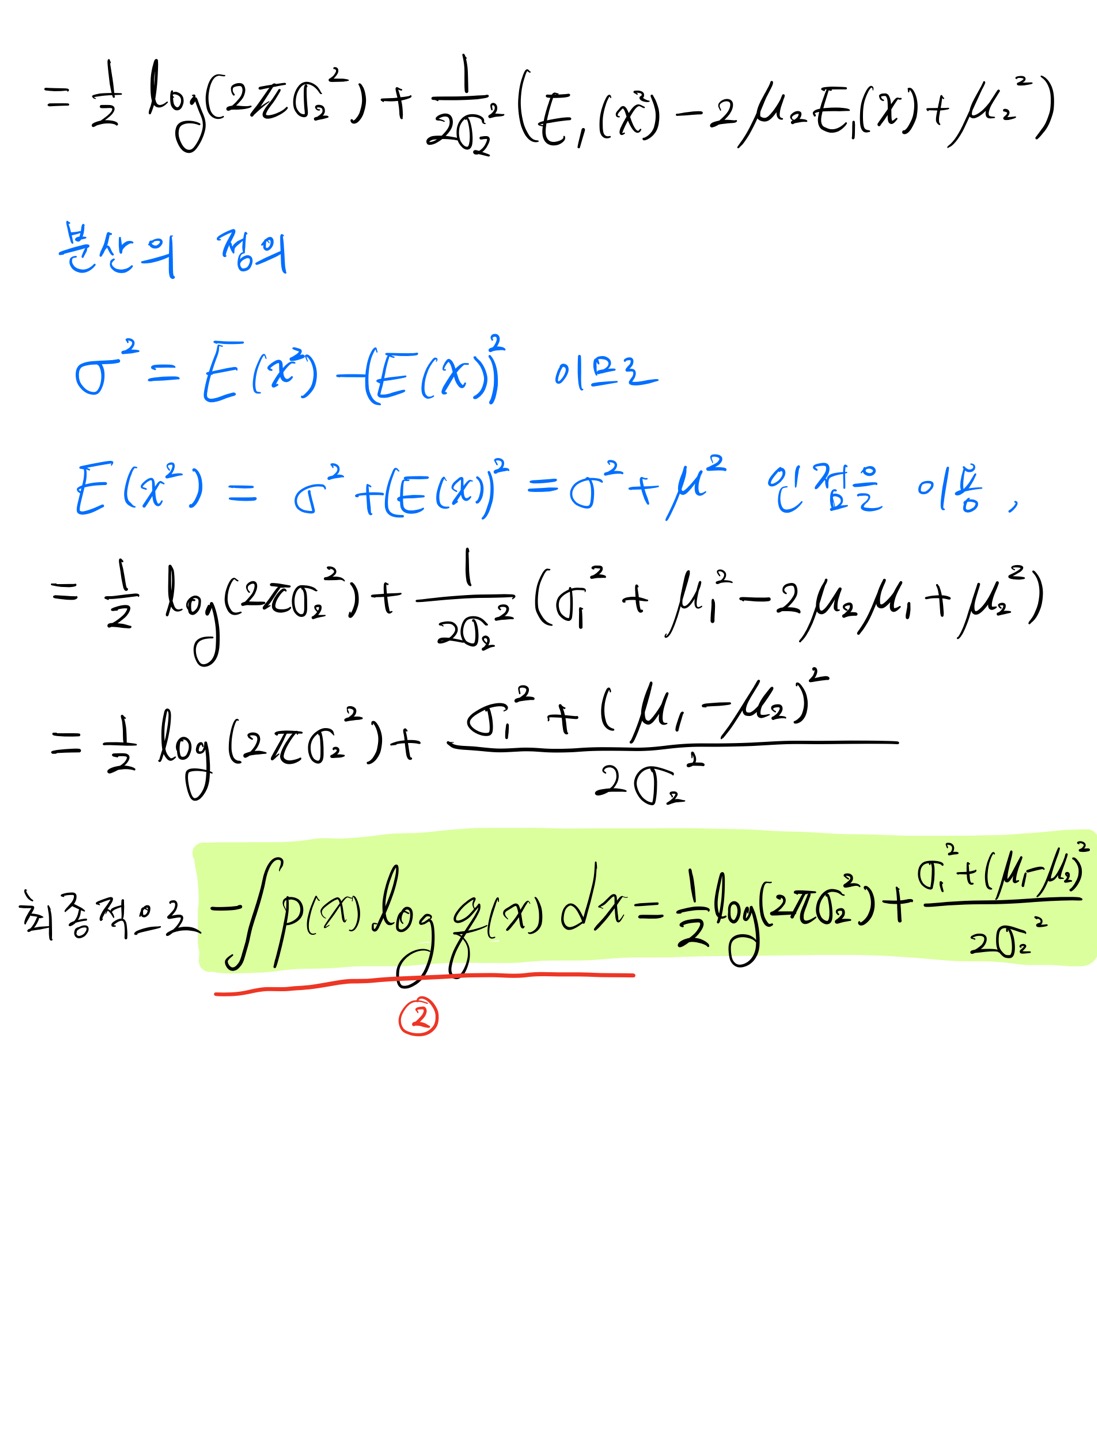 = 1/2 log(2πσ₂²) + 1/(2σ₂²) (E₁(x²) − 2μ₂E₁(x) + μ₂²)
분산의 정의
σ² = E(x²) − (E(x))² 이므로
E(x²) = σ² + (E(x))² = σ² + μ² 인점을 이용,
= 1/2 log(2πσ₂²) + 1/(2σ₂²) (σ₁² + μ₁² − 2μ₂μ₁ + μ₂²)
= 1/2 log(2πσ₂²) + (σ₁² + (μ₁ − μ₂)²)/(2σ₂²)
최종적으로 −∫p(x) log q(x) dx = 1/2 log(2πσ₂²) + (σ₁² + (μ₁−μ₂)²)/(2σ₂²)
②